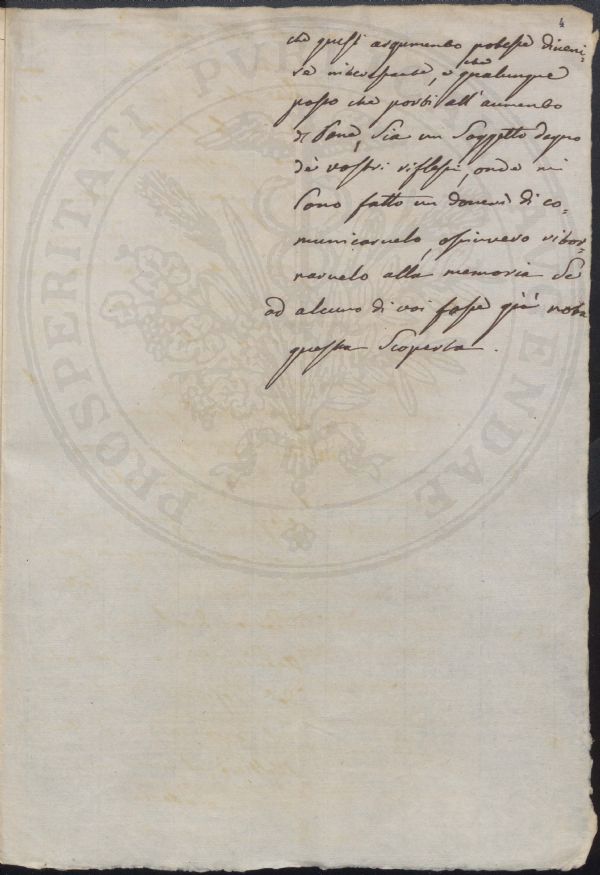 4
che quest'argumento potesse diveni-
re interessante, e che qualunque
passo che porti all'aumento
di Pane, sia un Soggetto degno
de' vostri riflessi, onde mi
sono fatto un dovere di co-
municarvelo, ossivvero ritor-
narvelo alla memoria se
ad alcuno di voi fosse già nota
questa Scoperta.
PROSPERITATI PUBLICAE AUGENDAE